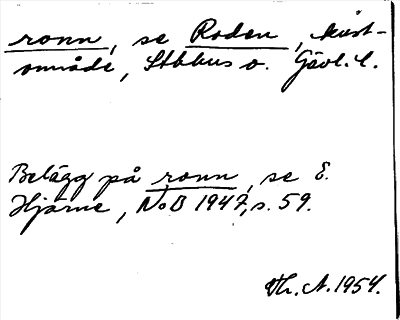 ronn, se Roden, kust-
område, Sthlms o. Gävl. l.
Belägg på ronn, se E.
Hjärne, NoB 1947, s. 59.
Vh. A. 1954.